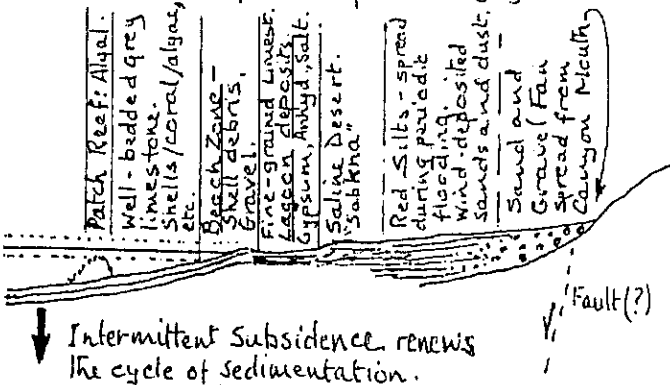 Patch Reef: Algal.
Well-bedded grey
limestone.
Shells/coral/algae,
etc.
Beach Zone -
Shell debris,
Gravel.
Fine-grained Limest.
Lagoon deposits.
Gypsum, Anhyd., Salt.
Saline Desert.
"Sabkha"
Red Silts - spread
during periodic
flooding.
Wind-deposited
sands and dust.
Sand and
Gravel Fan
spread from
Canyon Mouth
Fault (?)
Intermittent Subsidence renews
the cycle of sedimentation.